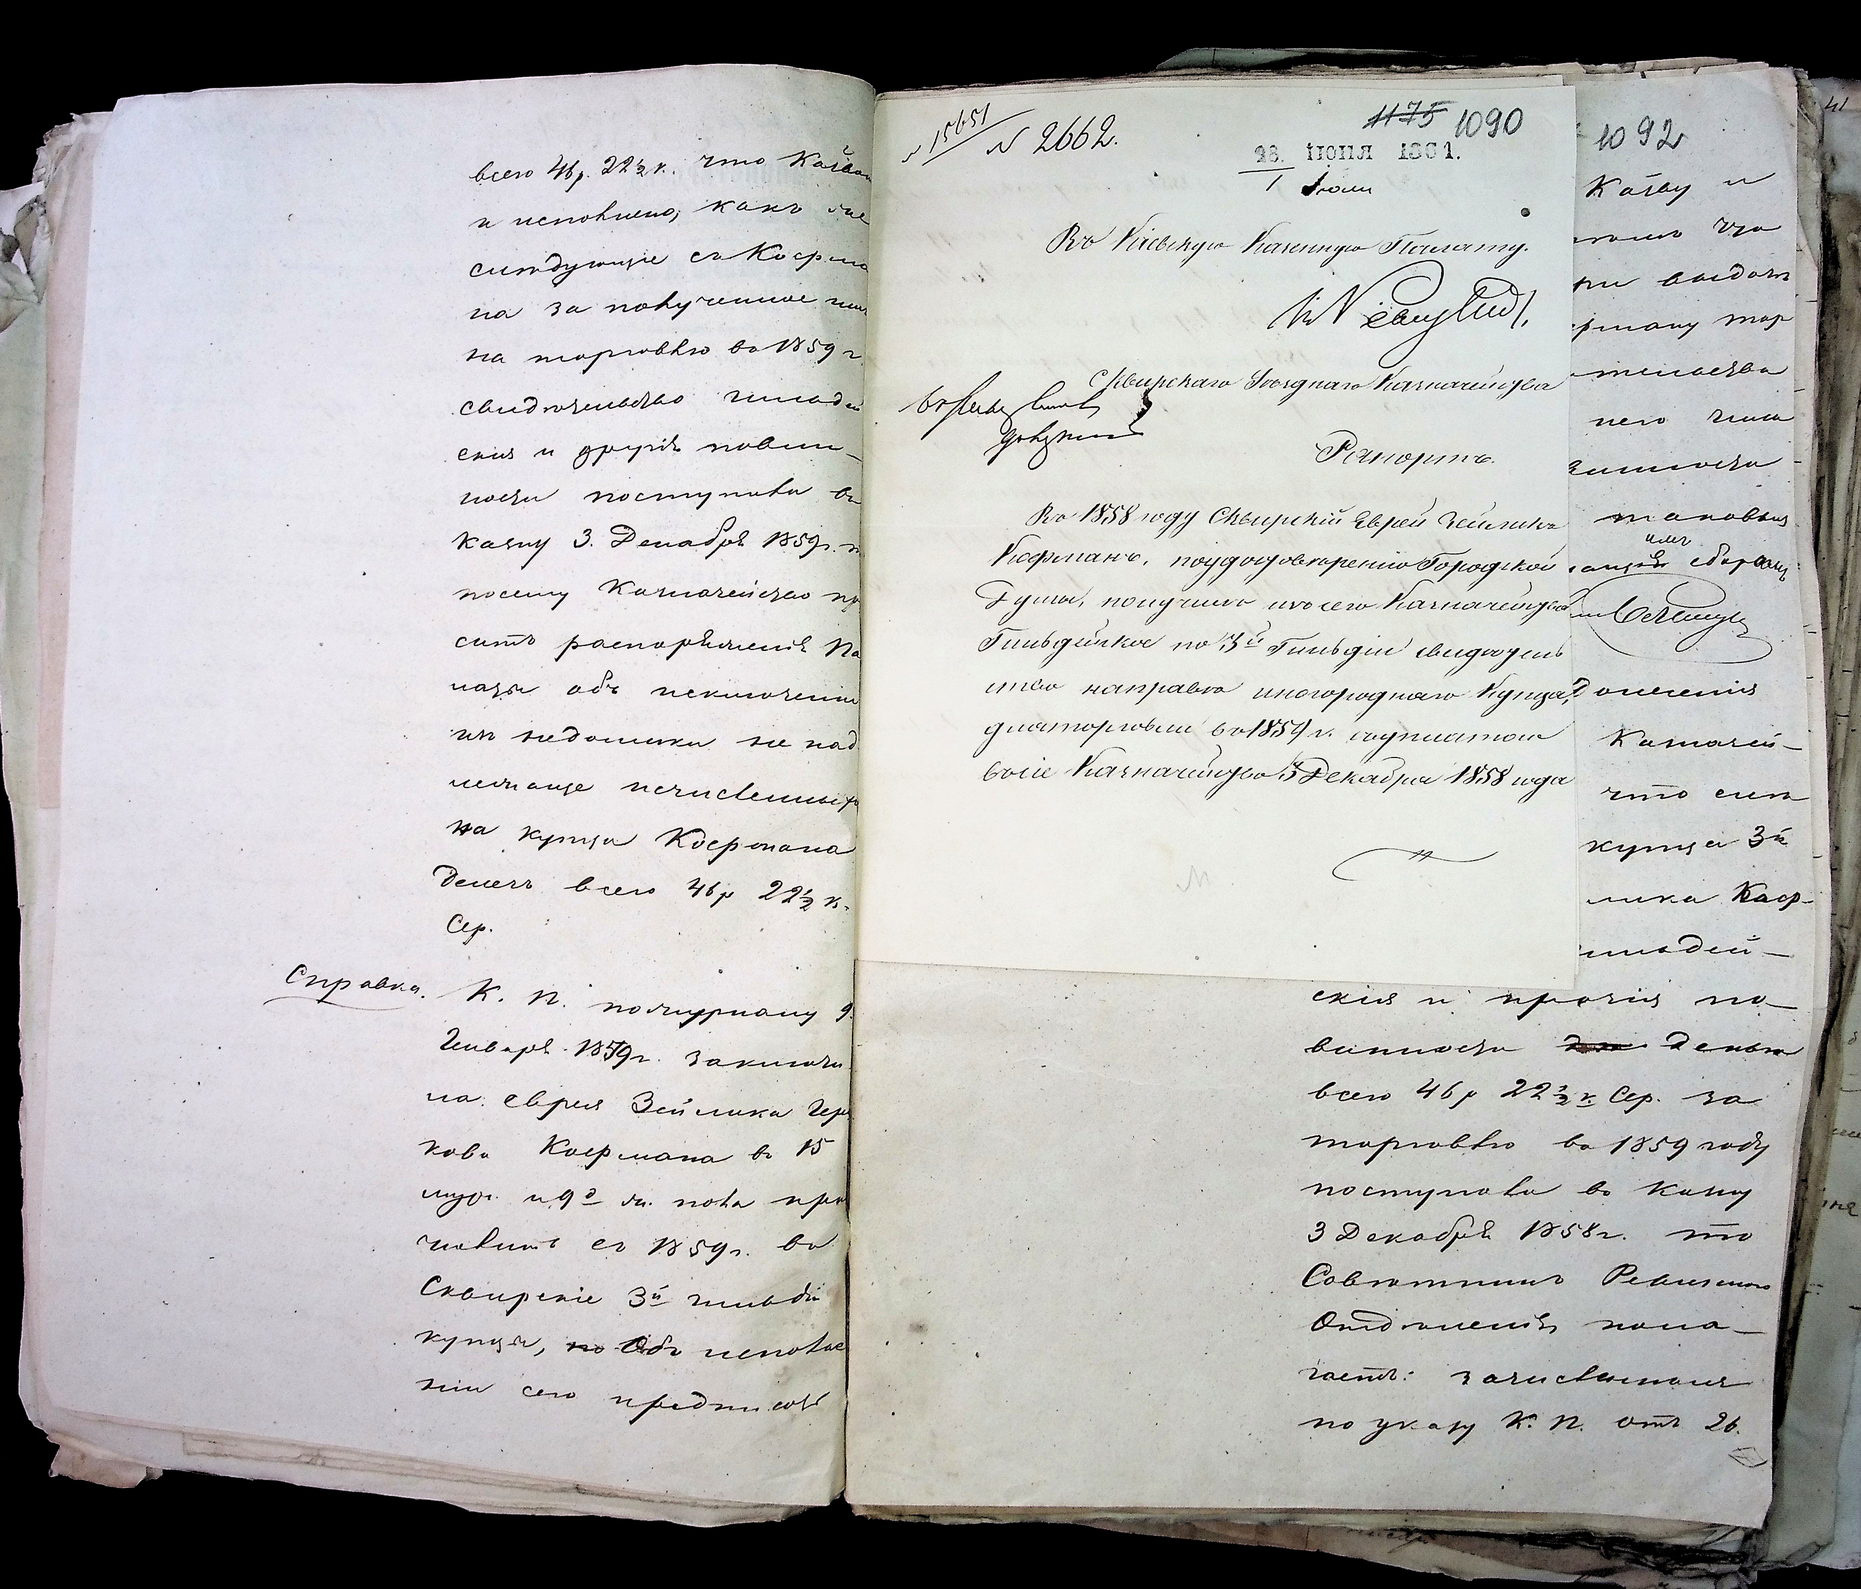 всего 46 р. 22½ к. что Казною
и исполнено, какъ
слѣдующіе съ Кофма
на за полученное имъ
на торговлю въ 1859 г
свидѣтельство гильдей
скія и другія повин–
ности поступили въ
казну 3. Декабря 1859 г.
посему Казначейство про
ситъ распоряженія Па
латы объ исключеніи
изъ недоимки не над
лежаще исчисленныхъ
на купца Кофмана
денегъ всего 46 р 22½ к.
Сер.
Справка. К. П. по журналу 9.
Генваря 1859 г. заключи
ла: еврея Зейлика Гер
кова Кофмана въ 15
муж. и 9 ж. пола при
числить съ 1859 г. въ
Сквирскіе 3й гильдіи
купцы, объ исполне
ніи сего предписавъ
№ 15651
№ 2662.
1175 1090
28. ІЮНЯ 1861.
1 Іюля
Въ Кіевскую Казенную Палату.
Сквирскаго Уѣзднаго Казначейства
Рапортъ.
Въ 1858 году Сквирскій Еврей Зейликъ
Кофманъ, по удостовѣренію Городской
Думы, получилъ изъ сего Казначейства
Гильдійское по 3й Гильдіи свидѣтель
ство на право иногороднаго Купца,
для торговли въ 1859 г. съ уплатою
въ сіе Казначейство 3 Декабря 1858 года
1092
Казну и
что
при выдачѣ
фману тор
тельства
него гиль
винности
таковыя
имъ
сборомъ
Донесенія
Казначей–
что съ
купца 3й
лика Каф–
гильдей–
скія и прочія по–
винности деньги
всего 46 р 22½ к. Сер. за
торговлю въ 1859 году
поступили въ казну
3 Декабря 1858 г. то
Совѣтникъ Ревизскаго
Отдѣленія пола–
гаетъ: зачислившіяся
по указу К. П. отъ 26.
41